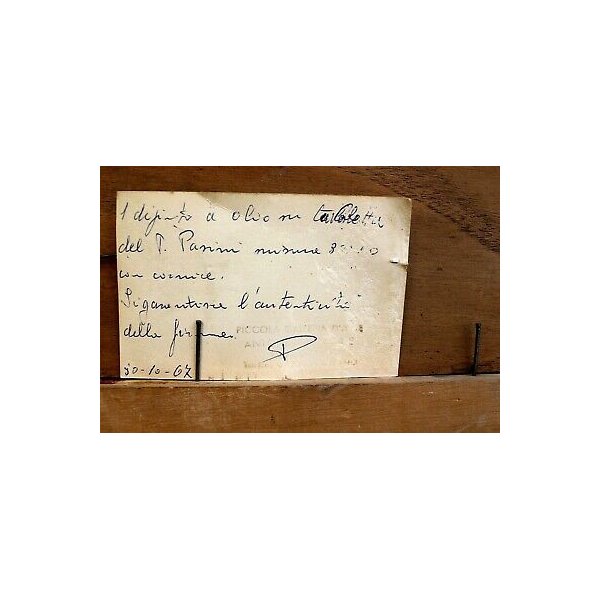 1 dipinto a olio su tavoletta
del P. Pasini misura
con cornice.
Si garentisce l'autenticità
della firma
PICCOLA
30-10-67